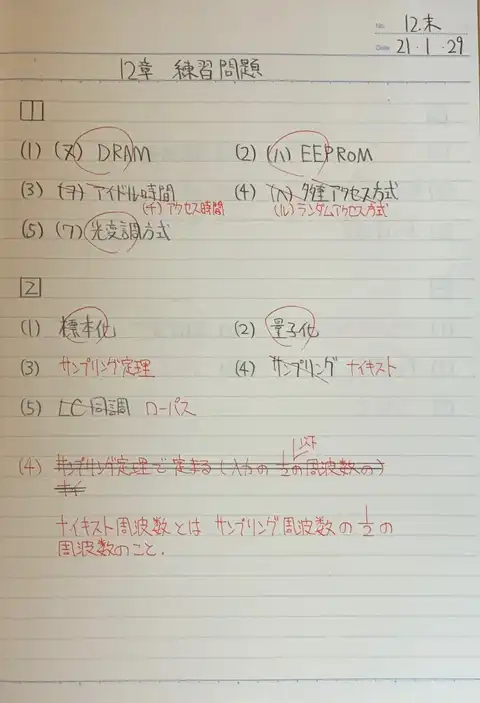 No. 12.末
Date 21・1・29
12章 練習問題
1
(1) (ヌ) DRAM (2) (ハ) EEPROM
(3) (ヲ) アイドル時間 (4) (ヘ) 多重アクセス方式
(チ) アクセス時間 (ル) ランダムアクセス方式
(5) (ワ) 光変調方式
2
(1) 標本化 (2) 量子化
(3) サンプリング定理 (4) サンプリング ナイキスト
(5) LC同調 ローパス
以下
(4) サンプリング定理で定まる(入力の1/2の周波数の)
ナイキスト周波数とは サンプリング周波数の 1/2 の
周波数のこと.